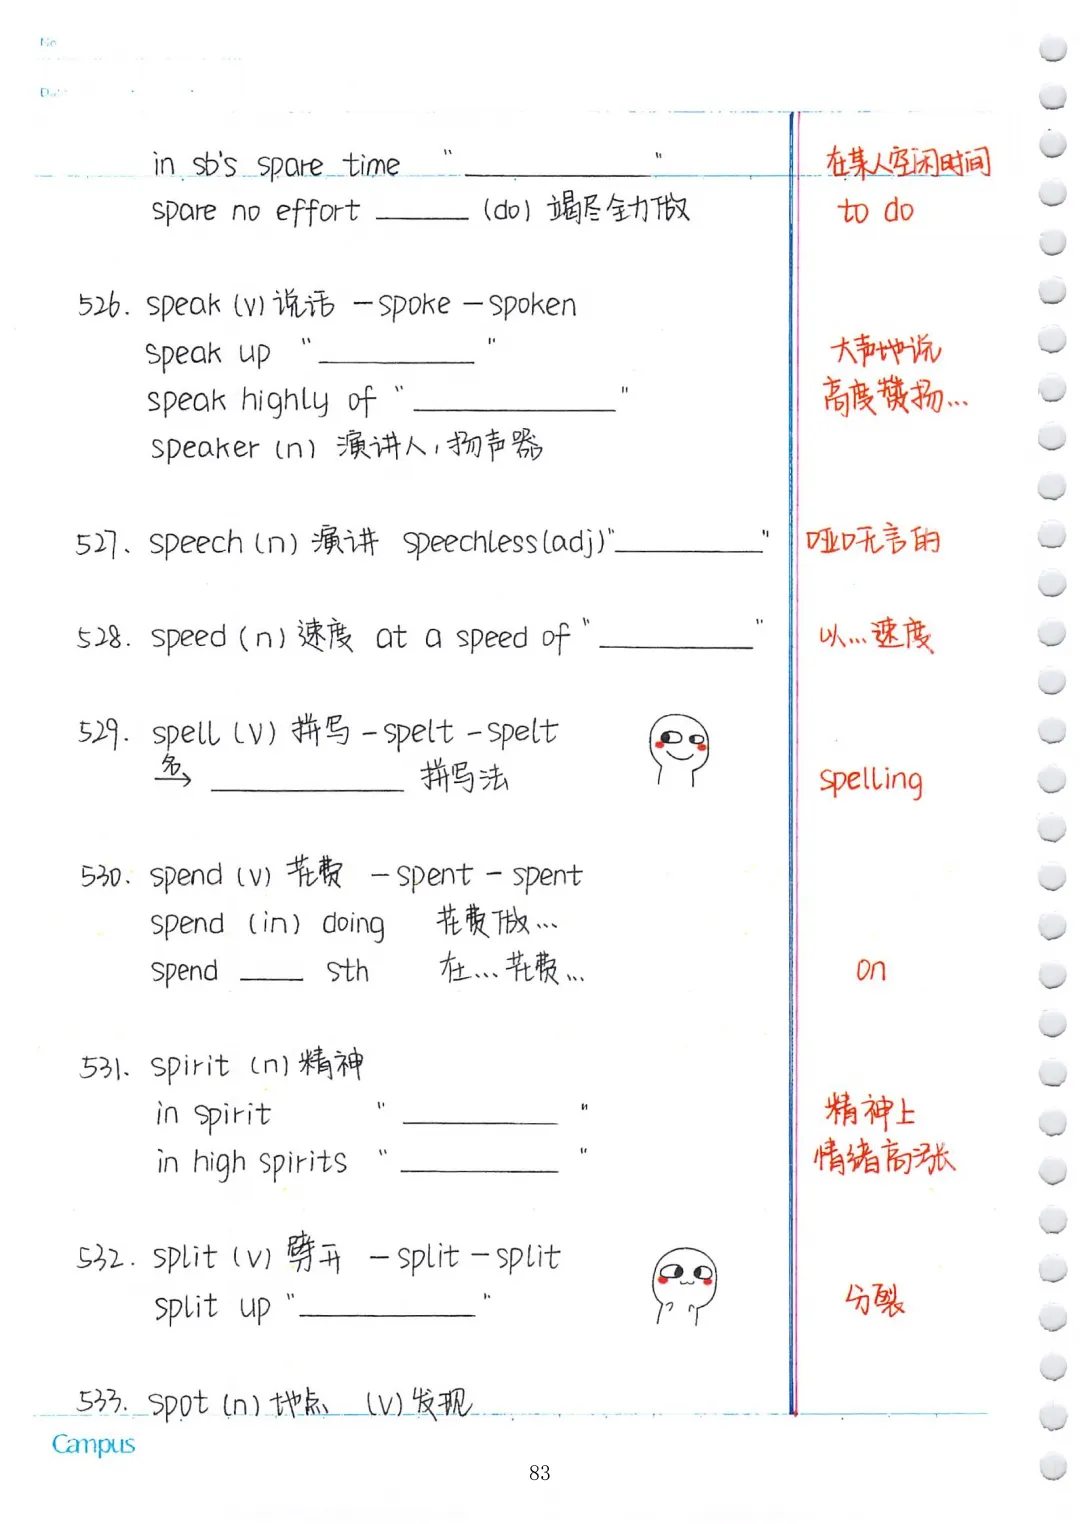 No.
Date
in sb's spare time " __________ " 在某人空闲时间
spare no effort ______ (do) 竭尽全力做 to do
526. speak (v) 说话 — spoke — spoken
speak up " __________ " 大声地说
speak highly of " __________ " 高度赞扬...
speaker (n) 演讲人,扬声器
527. speech (n) 演讲 speechless (adj) " __________ " 哑口无言的
528. speed (n) 速度 at a speed of " __________ " 以...速度
529. spell (v) 拼写 — spelt — spelt
名→ __________ 拼写法 spelling
530. spend (v) 花费 — spent — spent
spend (in) doing 花费做...
spend ____ sth 在...花费... on
531. spirit (n) 精神
in spirit " __________ " 精神上
in high spirits " __________ " 情绪高涨
532. split (v) 劈开 — split — split
split up " __________ " 分裂
533. spot (n) 地点 (v) 发现
Campus
83